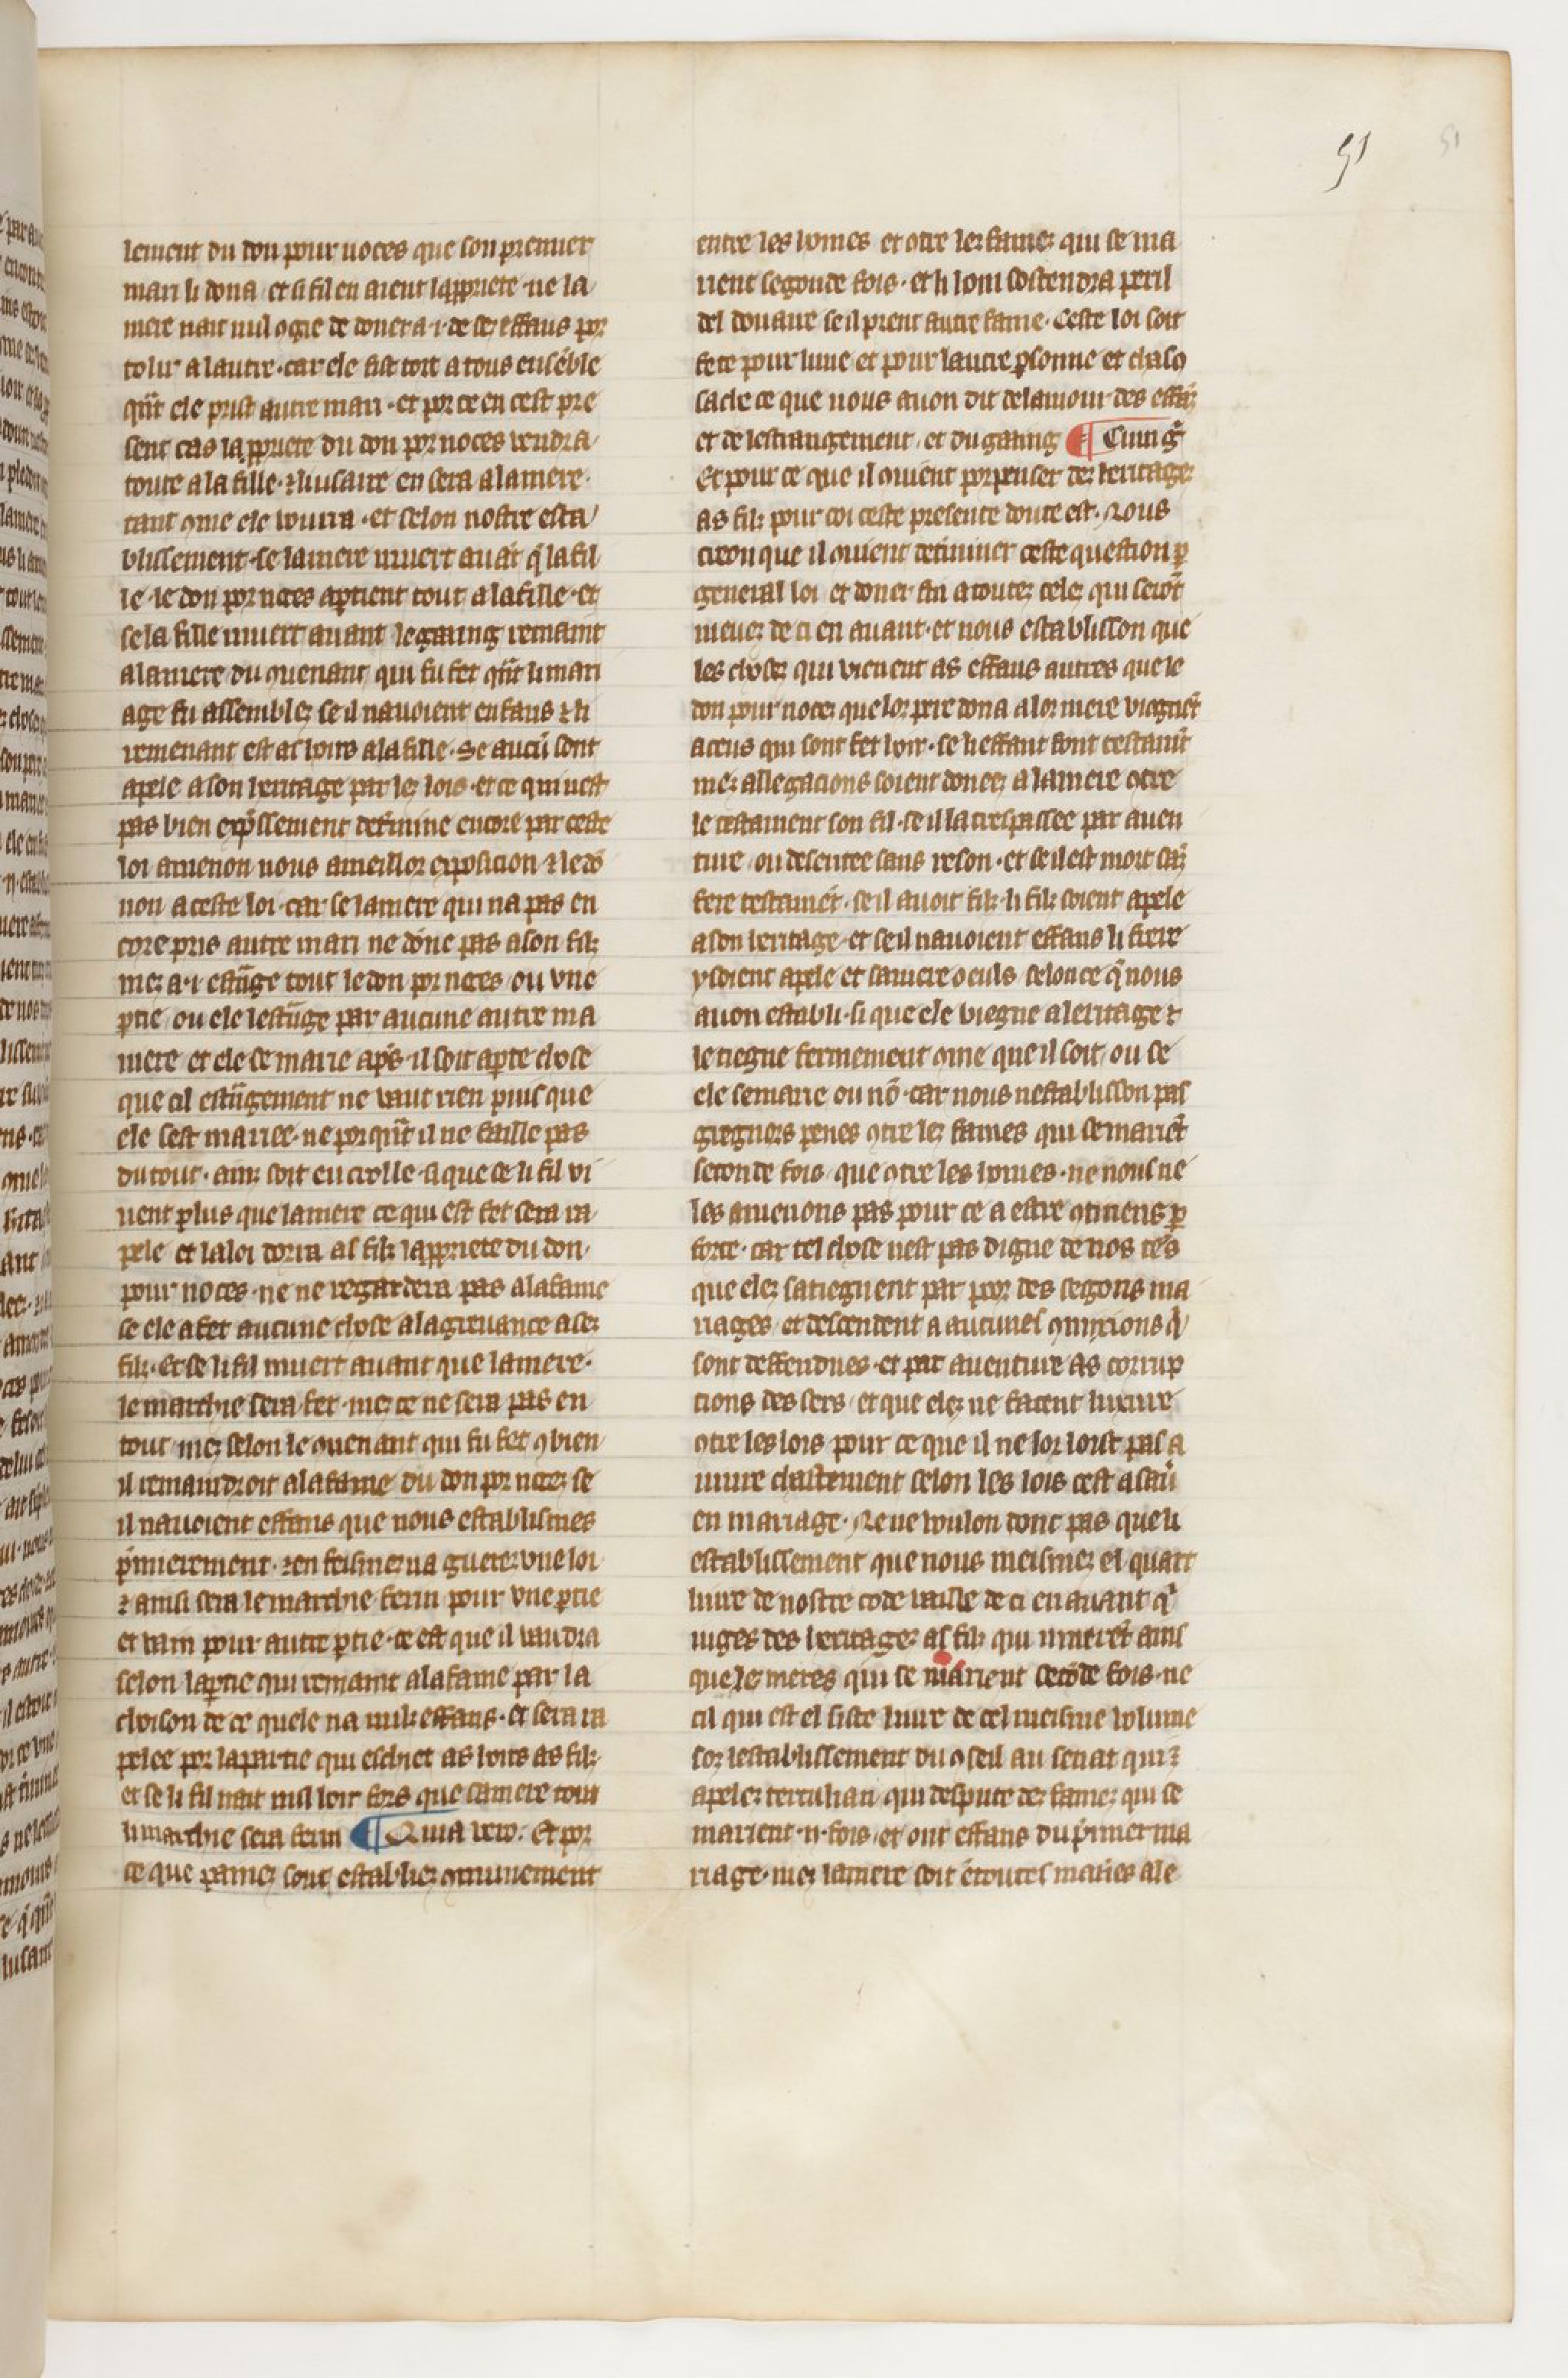 51 51
lement du don pour noces que son premier
mari li dona et si fil en aient la ꝓpriete ne la
mere nait nul ꝯgie de doner a ·i· de sez effans por
tolir a lautre · car ele fist tort a tous ensēble
qn̄t ele prist autre mari · et por ce en cest pre
sent cas la ꝓpriete du don por noces vendra
toute a la fille · ⁊ lusaire en sera a la mere ·
tant ꝯme ele viura · et selon nostre esta
blissement · se la mere muert auāt q̄ la fil
le · le don por noces aꝑtient tout a la fille · et
se la fille muert auant le gaaing remaint
a la mere du ꝯuenant qui fu fet qn̄t li mari
age fu assemblez se il nauoient enfans ⁊ li
remenant est as hoirs a la fille · Se aucū sont
apele a son heritage par lez lois · et ce qui nest
pas bien exp̄ssement det̄mine encore par ceste
loi amenon nous a meillor exposicion ⁊ le dō
non a ceste loi · car se la mere qui na pas en
core pris autre mari ne dōne pas a son filz
mez a ·i· estrāge tout le don por noces ou vne
ꝑtie ou ele lestrāge par aucune autre ma
niere et ele se marie ap̄s · il soit aperte chose
que cil estrāgement ne vaut rien puis que
ele sest mariee · ne por qn̄t il ne faille pas
du tout · ainz soit en ciolle · a que se li fil vi
uent plus que la mere ce qui est fet sera ra
pele et la loi dorra as filz la ꝓpriete du don
pour noces · ne ne regardera pas a la fame
se ele a fet aucune chose a la greuance a sez
filz · Et se li fil muert auant que la mere ·
le marchie sera fet · mez ce ne sera pas en
tout mez selon le ꝯuenant qui fu fet ꝯbien
il remaindroit a la fame du don por nocez se
il nauoient effans que nous establismes
p̄mierement · ⁊ en feismez na guerez vne loi
⁊ ainsi sera le marchie ferm pour vne ꝑtie
et vain pour autre ꝑtie · ce est que il vaudra
selon la ꝑtie qui remaint a la fame par la
choison de ce quele na nulz effans · et sera ra
pelee por la partie qui eschiet as hoirs as filz
et se li fil nait nul hoir fors que sa mere tout
li marchie sera ferm ¶ Quia vero · Et por
ce que painez sont establiez ꝯmunement
entre les homes et ꝯtre lez famez qui se ma
rient segonde fois · et li hom sostendra peril
del douaire se il prent autre fame · Ceste loi soit
fete pour lune et pour lautre ꝑsonne et chaso
sacle ce que nous auon dit de lamour des effāz
et de lestrangement · et du gaaing ¶ Cum g̊
Et pour ce que il ꝯuient porpenser dez heritagez
as filz pour coi ceste presente doute est · Nous
creon que il ꝯuient det̄miner ceste question ꝑ
general loi et doner fin a toutez celez qui serōt
meuez de ci en auant · et nous establisson que
les chosez qui vienent as effans autres que le
don pour nocez que lor pere dona a lor mere viegnēt
a ceus qui sont fet hoir · se li effant font testamēt
mez allegacions soient doneez a la mere ꝯtre
le testament son fil · se il la trespassee par auen
ture ou deseritee sans reson · et se il est mort sāz
fere testamēt · se il auoit filz · li filz soient apele
a son heritage · et se il nauoient effans li frere
y soient apele et sa mere o euls selonc ce q̄ nous
auon establi · si que ele viegne a leritage ⁊
le tiegne fermement ꝯme que il soit · ou se
ele se marie ou nō · car nous nestablisson pas
gregnors penes ꝯtre lez fames qui se mariēt
seconde fois · que ꝯtre les homes · ne nous ne
les amenons pas pour ce a estre ꝯtinens ꝑ
force · car tel chose nest pas digne de nos tēs
que elez satiegnent par poor des segons ma
riages · et descendent a aucunes ꝯmixions q̇
sont deffendues · et par auenture as corrup
tions des sers · et que elez ne facent luxure
ꝯtre les lois pour ce que il ne lor loist pas a
viure chastement selon les lois cest asauī
en mariage · Ne ne voulon donc pas que li
establissement que nous meismez el quart
liure de nostre code vaille de ci en auant q̇
iuges des heritagez as filz qui murēt ains
que lez meres qui se marient secōde fois · ne
cil qui est el siste liure de cel meisme volume
sor lestablissement du ꝯseil au senat qui ē
apelez tertulian qui despute dez famez qui se
marient ·ii· fois · et ont effans du p̄mier ma
riage · mez la mere soit ētoutes manīes ale